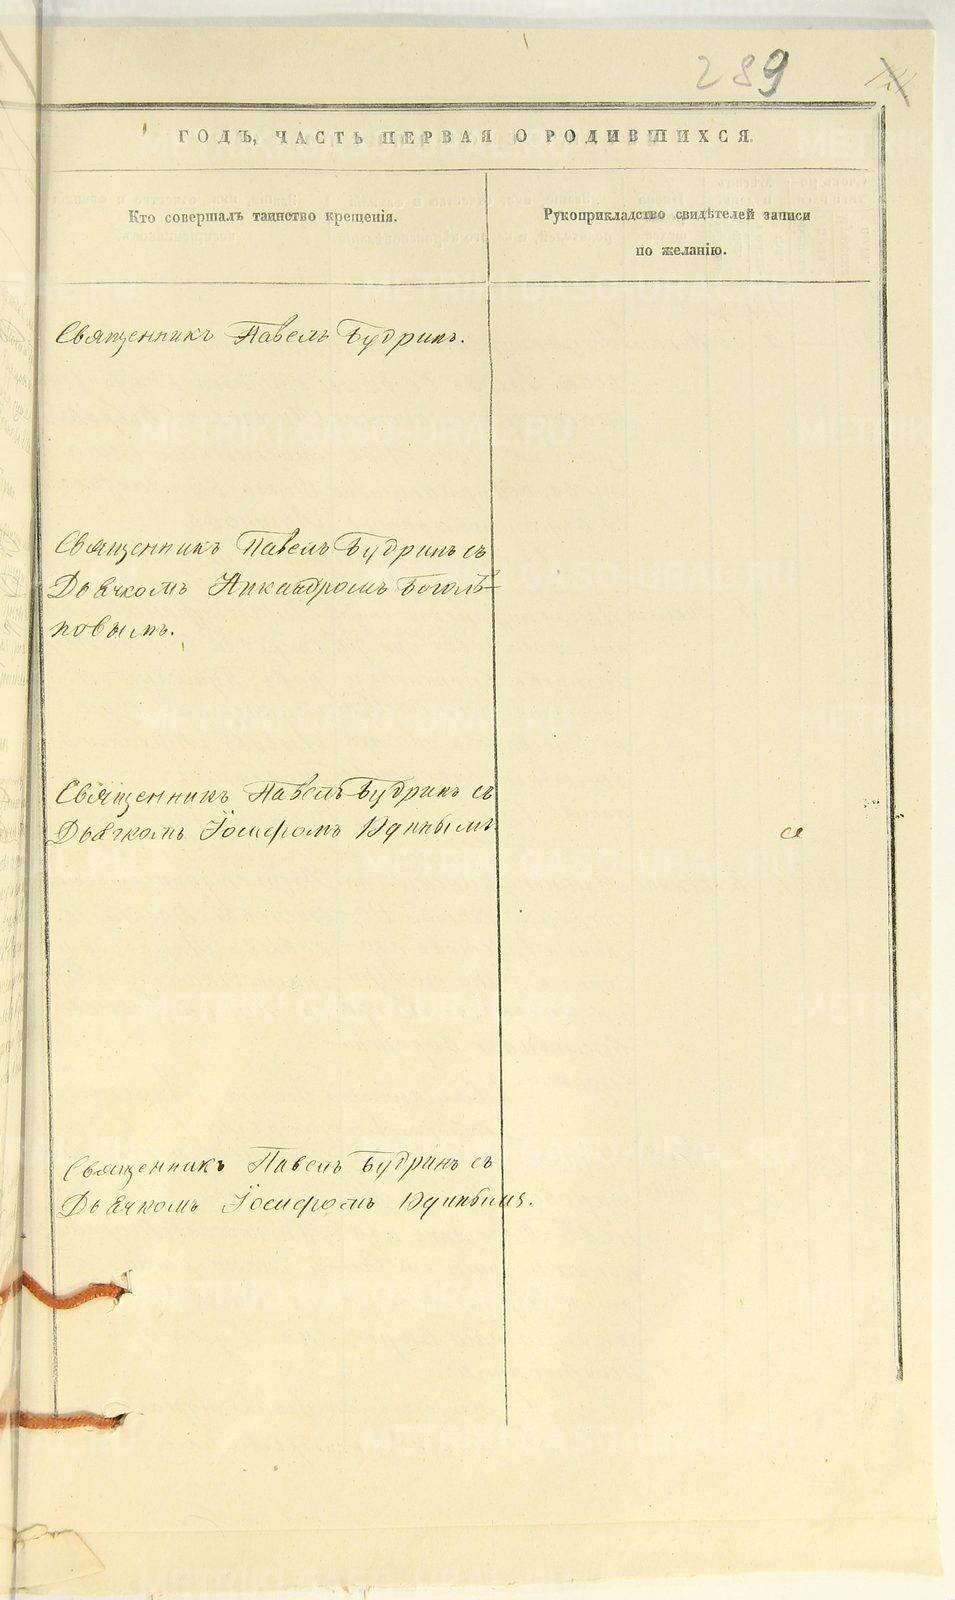 289
ГОДЪ, ЧАСТЬ ПЕРВАЯ О РОДИВШИХСЯ.
Кто совершалъ таинство крещенія.
Рукоприкладство свидѣтелей записи
по желанію.
Священникъ Павелъ Будринъ.
Священникъ Павелъ Будринъ съ
Дьячкомъ Никандромъ Боголѣ-
повымъ.
Священникъ Павелъ Будринъ съ
Дьячкомъ Іосифомъ Юдинымъ
Священникъ Павелъ Будринъ съ
Дьячкомъ Іосифомъ Юдинымъ.
METRIKI.GASO-URAL.RU